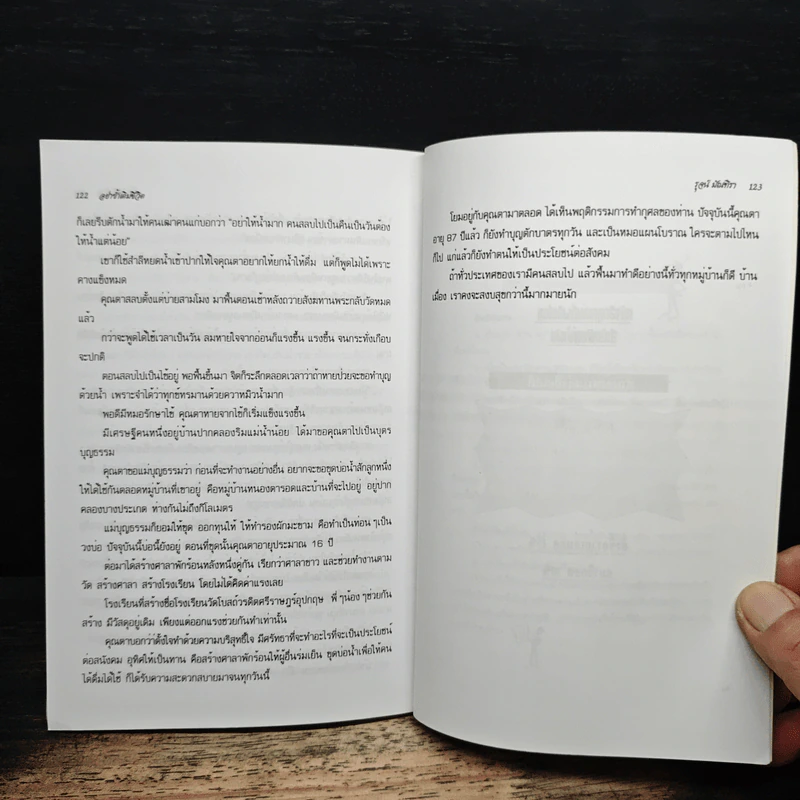 122 อย่าซ้ำเติมชีวิต
ก็เลยรีบตักน้ำมาให้คนเฒ่าคนแก่บอกว่า "อย่าให้น้ำมาก คนสลบไปเป็นคืนเป็นวันต้อง
ให้น้ำแต่น้อย"
เขาก็ใช้สำลีหยดน้ำเข้าปากให้ใจคุณตาอยากให้ยกน้ำให้ดื่ม แต่ก็พูดไม่ได้เพราะ
คางแข็งหมด
คุณตาสลบตั้งแต่บ่ายสามโมง มาฟื้นตอนเช้าหลังถวายสังฆทานพระกลับวัดหมด
แล้ว
กว่าจะพูดได้ใช้เวลาเป็นวัน ลมหายใจจากอ่อนก็แรงขึ้น แรงขึ้น จนกระทั่งเกือบ
จะปกติ
ตอนสลบไปเป็นไข้อยู่ พอฟื้นขึ้นมา จิตก็ระลึกตลอดเวลาว่าถ้าหายป่วยจะขอทำบุญ
ด้วยน้ำ เพราะจำได้ว่าทุกข์ทรมานด้วยความหิวน้ำมาก
พอดีมีหมอรักษาไข้ คุณตาหายจากไข้ก็เริ่มแข็งแรงขึ้น
มีเศรษฐีคนหนึ่งอยู่บ้านปากคลองริมแม่น้ำน้อย ได้มาขอคุณตาไปเป็นบุตร
บุญธรรม
คุณตาขอแม่บุญธรรมว่า ก่อนที่จะทำงานอย่างอื่น อยากจะขอขุดบ่อน้ำสักลูกหนึ่ง
ให้ได้ใช้กันตลอดหมู่บ้านที่เขาอยู่ คือหมู่บ้านหนองตารอดและบ้านที่จะไปอยู่ อยู่ปาก
คลองบางประเกด ห่างกันไม่ถึงกิโลเมตร
แม่บุญธรรมก็ยอมให้ขุด ออกทุนให้ ให้ทำรองผักมะขาม คือทำเป็นท่อนๆเป็น
วงบ่อ ปัจจุบันนี้บ่อนี้ยังอยู่ ตอนที่ขุดนั้นคุณตาอายุประมาณ 16 ปี
ต่อมาได้สร้างศาลาพักร้อนหลังหนึ่งคู่กัน เรียกว่าศาลาขาว และช่วยทำงานตาม
วัด สร้างศาลา สร้างโรงเรียน โดยไม่ได้คิดค่าแรงเลย
โรงเรียนที่สร้างชื่อโรงเรียนวัดโบสถ์วรดิตศรีราษฎร์อุปกฤษ พี่ๆน้องๆช่วยกัน
สร้าง มีวัสดุอยู่เดิม เพียงแต่ออกแรงช่วยกันทำเท่านั้น
คุณตาบอกว่าตั้งใจทำด้วยความบริสุทธิ์ใจ มีศรัทธาที่จะทำอะไรที่จะเป็นประโยชน์
ต่อสังคม อุทิศให้เป็นทาน คือสร้างศาลาพักร้อนให้ผู้อื่นร่มเย็น ขุดบ่อน้ำเพื่อให้คน
ได้ดื่มได้ใช้ ก็ได้รับความสะดวกสบายมาจนทุกวันนี้
123
โยมอยู่กับคุณตามาตลอด ได้เห็นพฤติกรรมการทำกุศลของท่าน ปัจจุบันนี้คุณตา
อายุ 87 ปีแล้ว ก็ยังทำบุญตักบาตรทุกวัน และเป็นหมอแผนโบราณ ใครจะตามไปไหน
ก็ไป แก่แล้วก็ยังทำตนให้เป็นประโยชน์ต่อสังคม
ถ้าทั่วประเทศของเรามีคนสลบไป แล้วฟื้นมาทำดีอย่างนี้ทั่วทุกหมู่บ้านก็ดี บ้าน
เมือง เราคงจะสงบสุขกว่านี้มากมายนัก